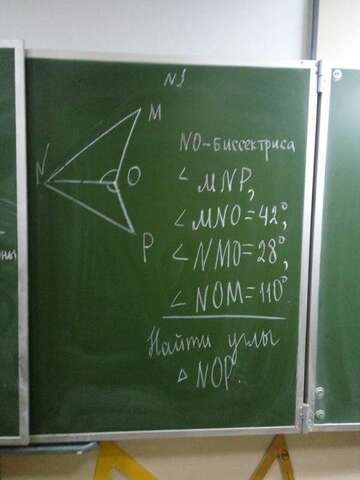 №1
M
NO-биссектриса
N
O
∠MNP,
∠MNO=42°,
P
∠NMO=28°,
∠NOM=110°
Найти углы
△NOP.